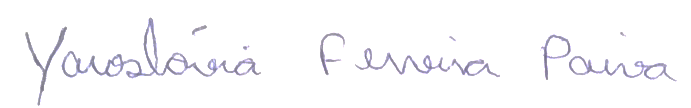 Yaroslávia Ferreira Paiva